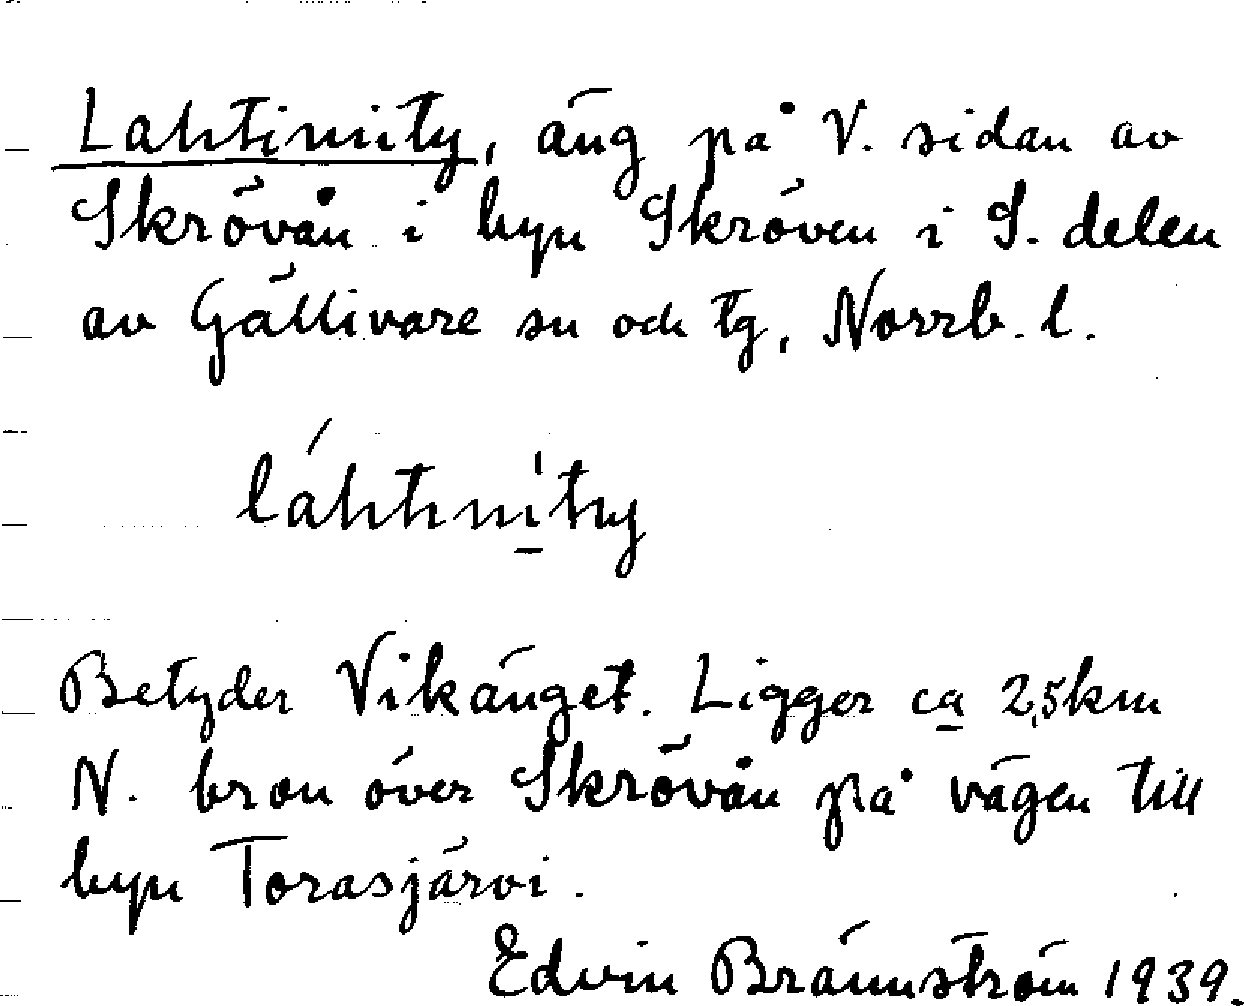 Lahtiniity, äng på V. sidan av
Skrövån i byn Skröven i S. delen
av Gällivare sn och tg, Norrb. l.
láhtini̱ˈty
Betyder Vikänget. Ligger ca 2,5 km
N. bron över Skrövån på vägen till
byn Torasjärvi.
Edvin Brännström 1939.